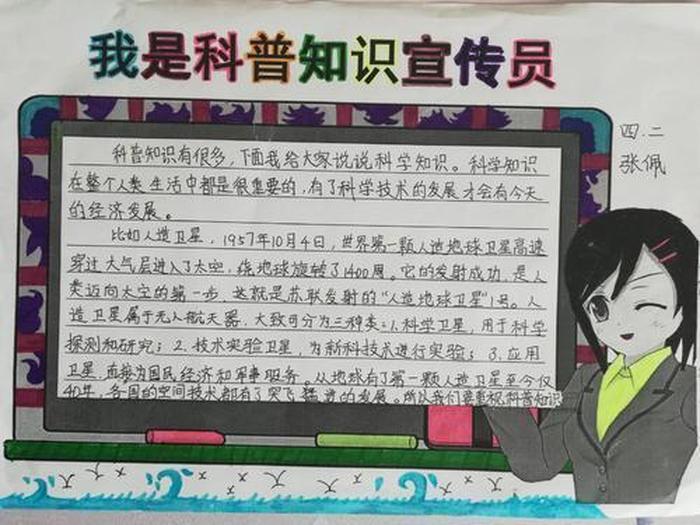 我是科普知识宣传员
四.二
张佩
科普知识有很多,下面我给大家说说科学知识。科学知识
在整个人类生活中都是很重要的,有了科学技术的发展才会有今天
的经济发展。
比如人造卫星,1957年10月4日,世界第一颗人造地球卫星高速
穿过大气层进入了太空,绕地球旋转了1400周。它的发射成功,是人
类迈向太空的第一步,这就是苏联发射的“人造地球卫星”1号。人
造卫星属于无人航天器,大致可分为三种类:1.科学卫星,用于科学
探测和研究;2.技术实验卫星,为新科技术进行实验;3.应用
卫星,直接为国民经济和军事服务。从地球有了第一颗人造卫星至今仅
40年,各国的空间技术都有了突飞猛进的发展。所以我们要重视科普知识